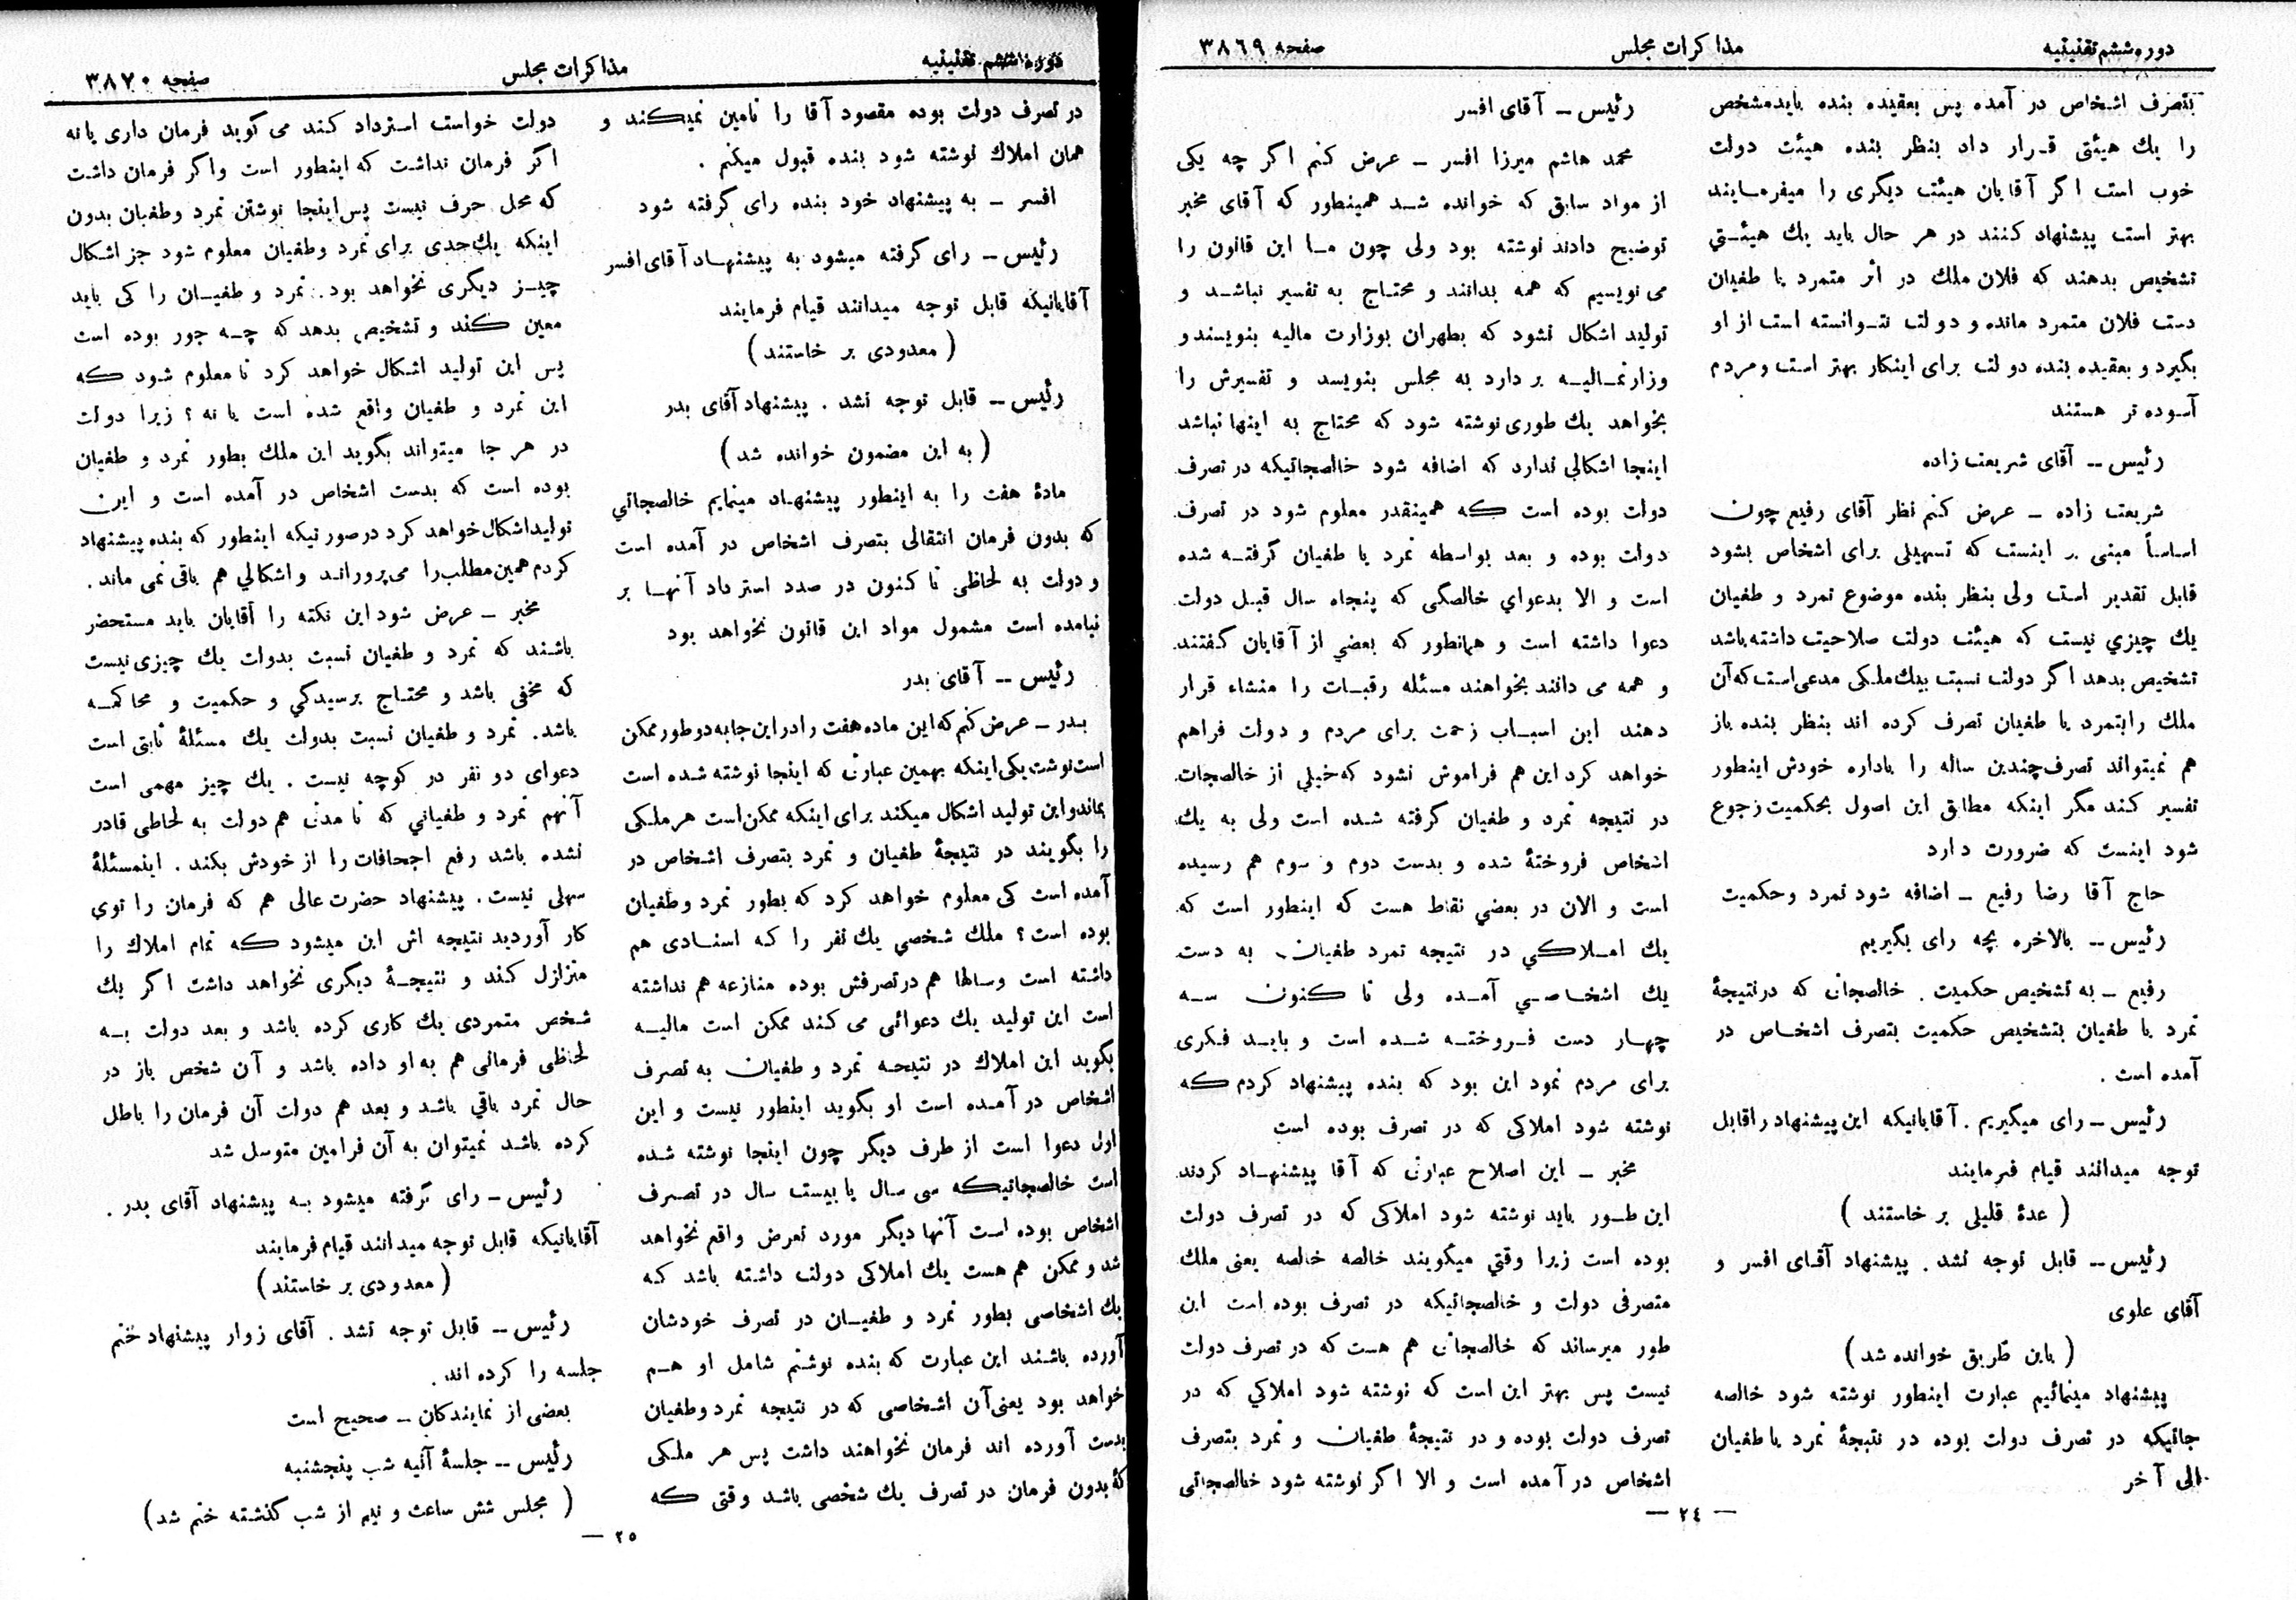 دوره ششم تقنینیه
مذاکرات مجلس
صفحه ۳۸٦۹
بتصرف اشخاص در آمده پس بعقیده بنده باید مشخص
را یك هیئتی قرار داد بنظر بنده هیئت دولت
خوب است اگر آقایان هیئت دیگری را میفرمایند
بهتر است پیشنهاد کنند در هر حال باید یك هیئتي
تشخیص بدهند که فلان ملك در اثر متمرد یا طغیان
دست فلان متمرد مانده و دولت نتوانسته است از او
بگیرد و بعقیده بنده دولت برای اینکار بهتر است ومردم
آسوده تر هستند
رئیس – آقای شریعت زاده
شریعت زاده – عرض کنم نظر آقای رفیع چون
اساساً مبنی بر اینست که تسهیلی برای اشخاص بشود
قابل تقدیر است ولی بنظر بنده موضوع تمرد و طغیان
یك چیزي نیست که هیئت دولت صلاحیت داشته باشد
تشخیص بدهد اگر دولت نسبت بیك ملکی مدعی است که آن
ملك را بتمرد یا طغیان تصرف کرده اند بنظر بنده باز
هم نمیتواند تصرف چندین ساله را باداره خودش اینطور
تفسیر کند مگر اینکه مطابق این اصول بحکمیت رجوع
شود اینست که ضرورت دارد
حاج آقا رضا رفیع – اضافه شود تمرد وحکمیت
رئیس – بالاخره بچه رای بگیریم
رفیع – به تشخیص حکمیت . خالصجات که در نتیجهٔ
تمرد یا طغیان بتشخیص حکمیت بتصرف اشخاص در
آمده است .
رئیس – رای میگیریم . آقایانیکه این پیشنهاد را قابل
توجه میدانند قیام فرمایند
( عدهٔ قلیلی بر خاستند )
رئیس – قابل توجه نشد . پیشنهاد آقای افسر و
آقای علوی
( باین طریق خوانده شد )
پیشنهاد مینمائیم عبارت اینطور نوشته شود خالصه
جاتیکه در تصرف دولت بوده در نتیجهٔ تمرد یا طغیان
الی آخر
رئیس – آقای افسر
محمد هاشم میرزا افسر – عرض کنم اگر چه یکی
از مواد سابق که خوانده شد همینطور که آقای مخبر
توضیح دادند نوشته بود ولی چون ما این قانون را
می نویسیم که همه بدانند و محتاج به تفسیر نباشد و
تولید اشکال نشود که بطهران بوزارت مالیه بنویسند و
وزارتمالیه بر دارد به مجلس بنویسد و تفسیرش را
بخواهد یك طوری نوشته شود که محتاج به اینها نباشد
اینجا اشکالی ندارد که اضافه شود خالصجاتیکه در تصرف
دولت بوده است که همینقدر معلوم شود در تصرف
دولت بوده و بعد بواسطه تمرد یا طغیان گرفته شده
است و الا بدعواي خالصگی که پنجاه سال قبل دولت
دعوا داشته است و همانطور که بعضي از آقایان گفتند
و همه می دانند بخواهند مسئله رقبات را منشاء قرار
دهند این اسباب زحمت برای مردم و دولت فراهم
خواهد کرد این هم فراموش نشود که خیلي از خالصجات
در نتیجه تمرد و طغیان گرفته شده است ولی به یك
اشخاص فروختهٔ شده و بدست دوم و سوم هم رسیده
است و الان در بعضي نقاط هست که اینطور است که
یك املاکي در نتیجه تمرد طغیان به دست
یك اشخاصي آمده ولی تا کنون سه
چهار دست فروخته شده است و باید فکری
برای مردم نمود این بود که بنده پیشنهاد کردم که
نوشته شود املاکی که در تصرف بوده است
مخبر – این اصلاح عبارتی که آقا پیشنهاد کردند
این طور باید نوشته شود املاکی که در تصرف دولت
بوده است زیرا وقتي میگویند خالصه خالصه یعنی ملك
متصرفی دولت و خالصجاتیکه در تصرف بوده است این
طور میرساند که خالصجاتی هم هست که در تصرف دولت
نیست پس بهتر این است که نوشته شود املاکي که در
تصرف دولت بوده و در نتیجهٔ طغیان و تمرد بتصرف
اشخاص در آمده است و الا اگر نوشته شود خالصجاتی
– ۲٤ –
دوره ششم تقنینیه
مذاکرات مجلس
صفحه ۳۸۷۰
در تصرف دولت بوده مقصود آقا را تامین نمیکند و
همان املاك نوشته شود بنده قبول میکنم .
افسر – به پیشنهاد خود بنده رای گرفته شود
رئیس – رای گرفته میشود به پیشنهاد آقای افسر
آقایانیکه قابل توجه میدانند قیام فرمایند
( معدودی بر خاستند )
رئیس – قابل توجه نشد . پیشنهاد آقای بدر
( به این مضمون خوانده شد )
مادهٔ هفت را به اینطور پیشنهاد مینمایم خالصجاتي
که بدون فرمان انتقالی بتصرف اشخاص در آمده است
و دولت به لحاظی تا کنون در صدد استرداد آنها بر
نیامده است مشمول مواد این قانون نخواهد بود
رئیس – آقای بدر
بدر – عرض کنم که این ماده هفت را در این جا به دو طور ممکن
است نوشت یکی اینکه بهمین عبارتی که اینجا نوشته شده است
بماند و این تولید اشکال میکند برای اینکه ممکن است هر ملکی
را بگویند در نتیجهٔ طغیان و تمرد بتصرف اشخاص در
آمده است کی معلوم خواهد کرد که بطور تمرد و طغیان
بوده است ؟ ملك شخصي یك نفر را که اسنادی هم
داشته است وسالها هم در تصرفش بوده منازعه هم نداشته
است این تولید یك دعوائی می کند ممکن است مالیه
بگوید این املاك در نتیجه تمرد و طغیان به تصرف
اشخاص در آمده است او بگوید اینطور نیست و این
اول دعوا است از طرف دیگر چون اینجا نوشته شده
است خالصجاتیکه سی سال یا بیست سال در تصرف
اشخاص بوده است آنها دیگر مورد تعرض واقع نخواهد
شد و ممکن هم هست یك املاکی دولت داشته باشد که
یك اشخاصی بطور تمرد و طغیان در تصرف خودشان
آورده باشند این عبارت که بنده نوشتم شامل او هم
خواهد بود یعنی آن اشخاصی که در نتیجه تمرد و طغیان
بدست آورده اند فرمان نخواهند داشت پس هر ملکی
که بدون فرمان در تصرف یك شخصی باشد وقتی که
دولت خواست استرداد کند می گوید فرمان داری یا نه
اگر فرمان نداشت که اینطور است و اگر فرمان داشت
که محل حرف نیست پس اینجا نوشتن تمرد و طغیان بدون
اینکه یك حدی برای تمرد و طغیان معلوم شود جز اشکال
چیز دیگری نخواهد بود . تمرد و طغیان را کی باید
معین کند و تشخیص بدهد که چه جور بوده است
پس این تولید اشکال خواهد کرد تا معلوم شود که
این تمرد و طغیان واقع شده است یا نه ؟ زیرا دولت
در هر جا میتواند بگوید این ملك بطور تمرد و طغیان
بوده است که بدست اشخاص در آمده است و این
تولید اشکال خواهد کرد در صورتیکه اینطور که بنده پیشنهاد
کردم همین مطلب را می پروراند و اشکالي هم باقی نمی ماند .
مخبر – عرض شود این نکته را آقایان باید مستحضر
باشند که تمرد و طغیان نسبت بدولت یك چیزی نیست
که مخفی باشد و محتاج برسیدگي و حکمیت و محاکمه
باشد . تمرد و طغیان نسبت بدولت یك مسئلهٔ ثابتی است
دعوای دو نفر در کوچه نیست . یك چیز مهمی است
آنهم تمرد و طغیاني که تا مدتی هم دولت به لحاظی قادر
نشده باشد رفع اجحافات را از خودش بکند . اینمسئلهٔ
سهلی نیست . پیشنهاد حضرت عالی هم که فرمان را توي
کار آوردید نتیجه اش این میشود که تمام املاك را
متزلزل کند و نتیجهٔ دیگری نخواهد داشت اگر یك
شخص متمردی یك کاری کرده باشد و بعد دولت به
لحاظی فرمانی هم به او داده باشد و آن شخص باز در
حال تمرد باقي باشد و بعد هم دولت آن فرمان را باطل
کرده باشد نمیتوان به آن فرامین متوسل شد
رئیس – رای گرفته میشود به پیشنهاد آقای بدر .
آقایانیکه قابل توجه میدانند قیام فرمایند
( معدودی بر خاستند )
رئیس – قابل توجه نشد . آقای زوار پیشنهاد ختم
جلسه را کرده اند .
بعضی از نمایندگان – صحیح است
رئیس – جلسهٔ آتیه شب پنجشنبه
( مجلس شش ساعت و نیم از شب گذشته ختم شد )
– ۲۵